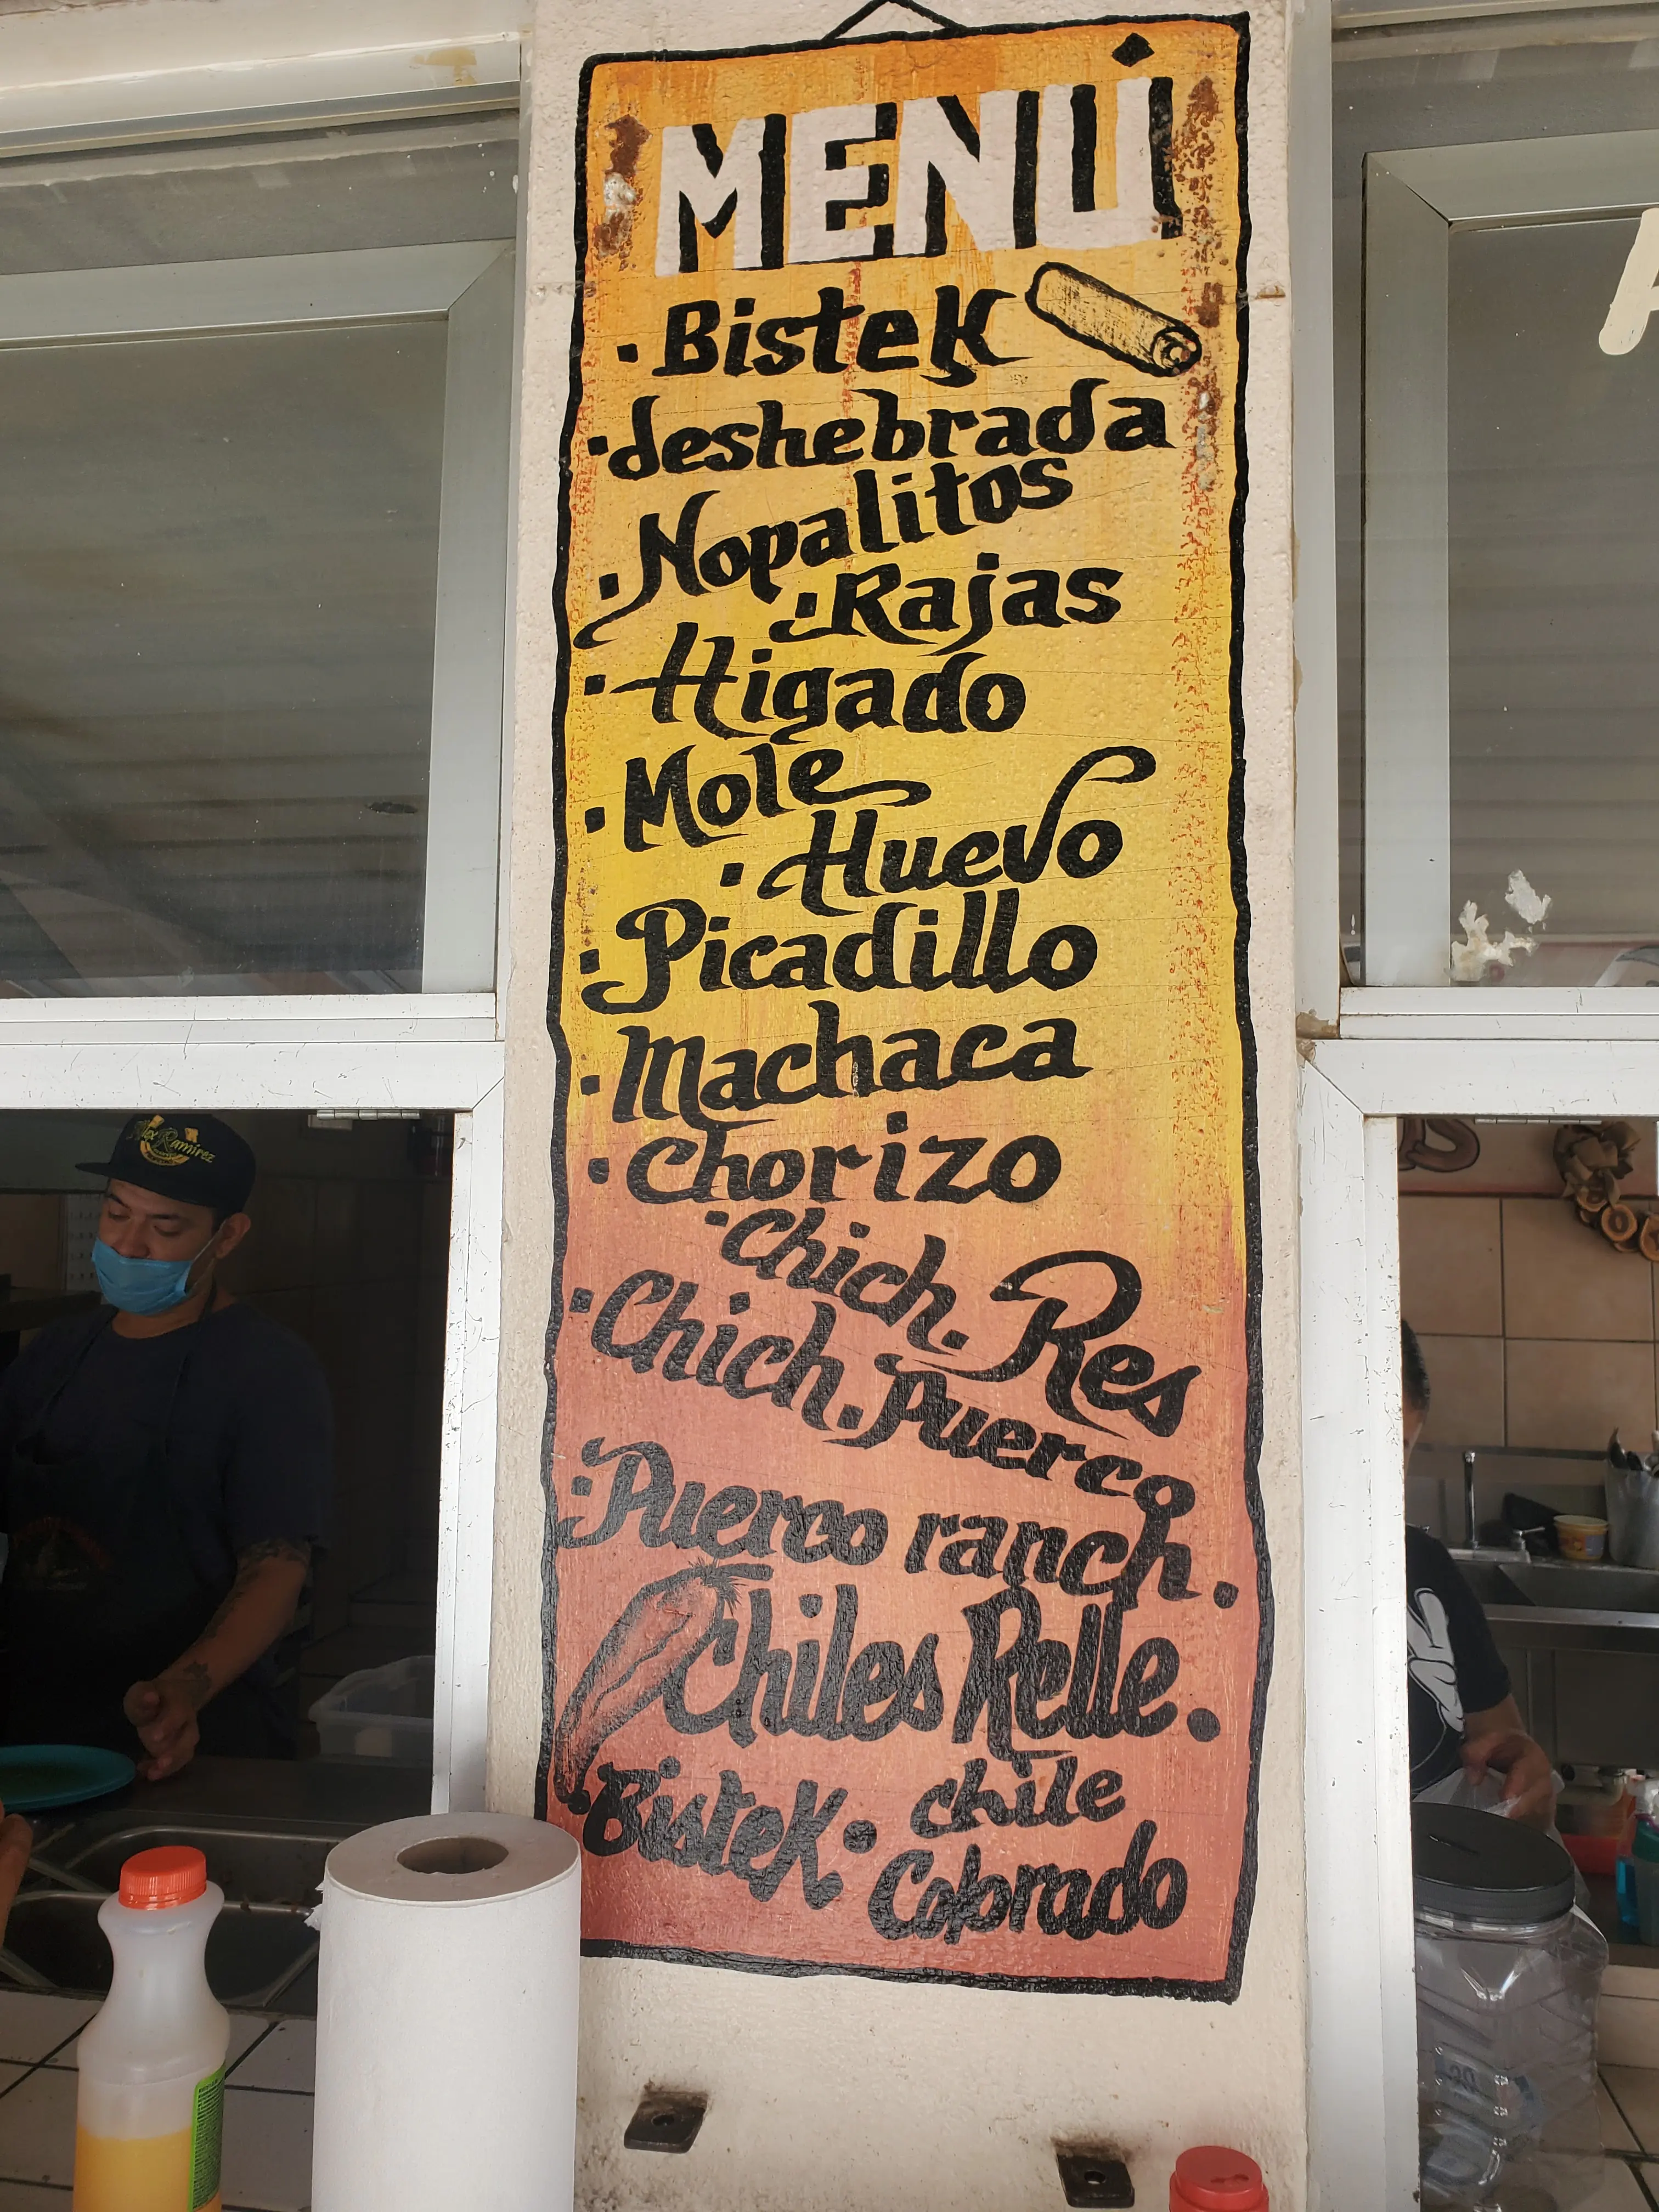 MENÚ
· Bistek
· deshebrada
· Nopalitos
· Rajas
· Higado
· Mole
· Huevo
· Picadillo
· Machaca
· Chorizo
· Chich. Res
· Chich. Puerco
· Puerco ranch.
Chiles Relle.
· Bistek · chile
Colorado
Alex Ramirez